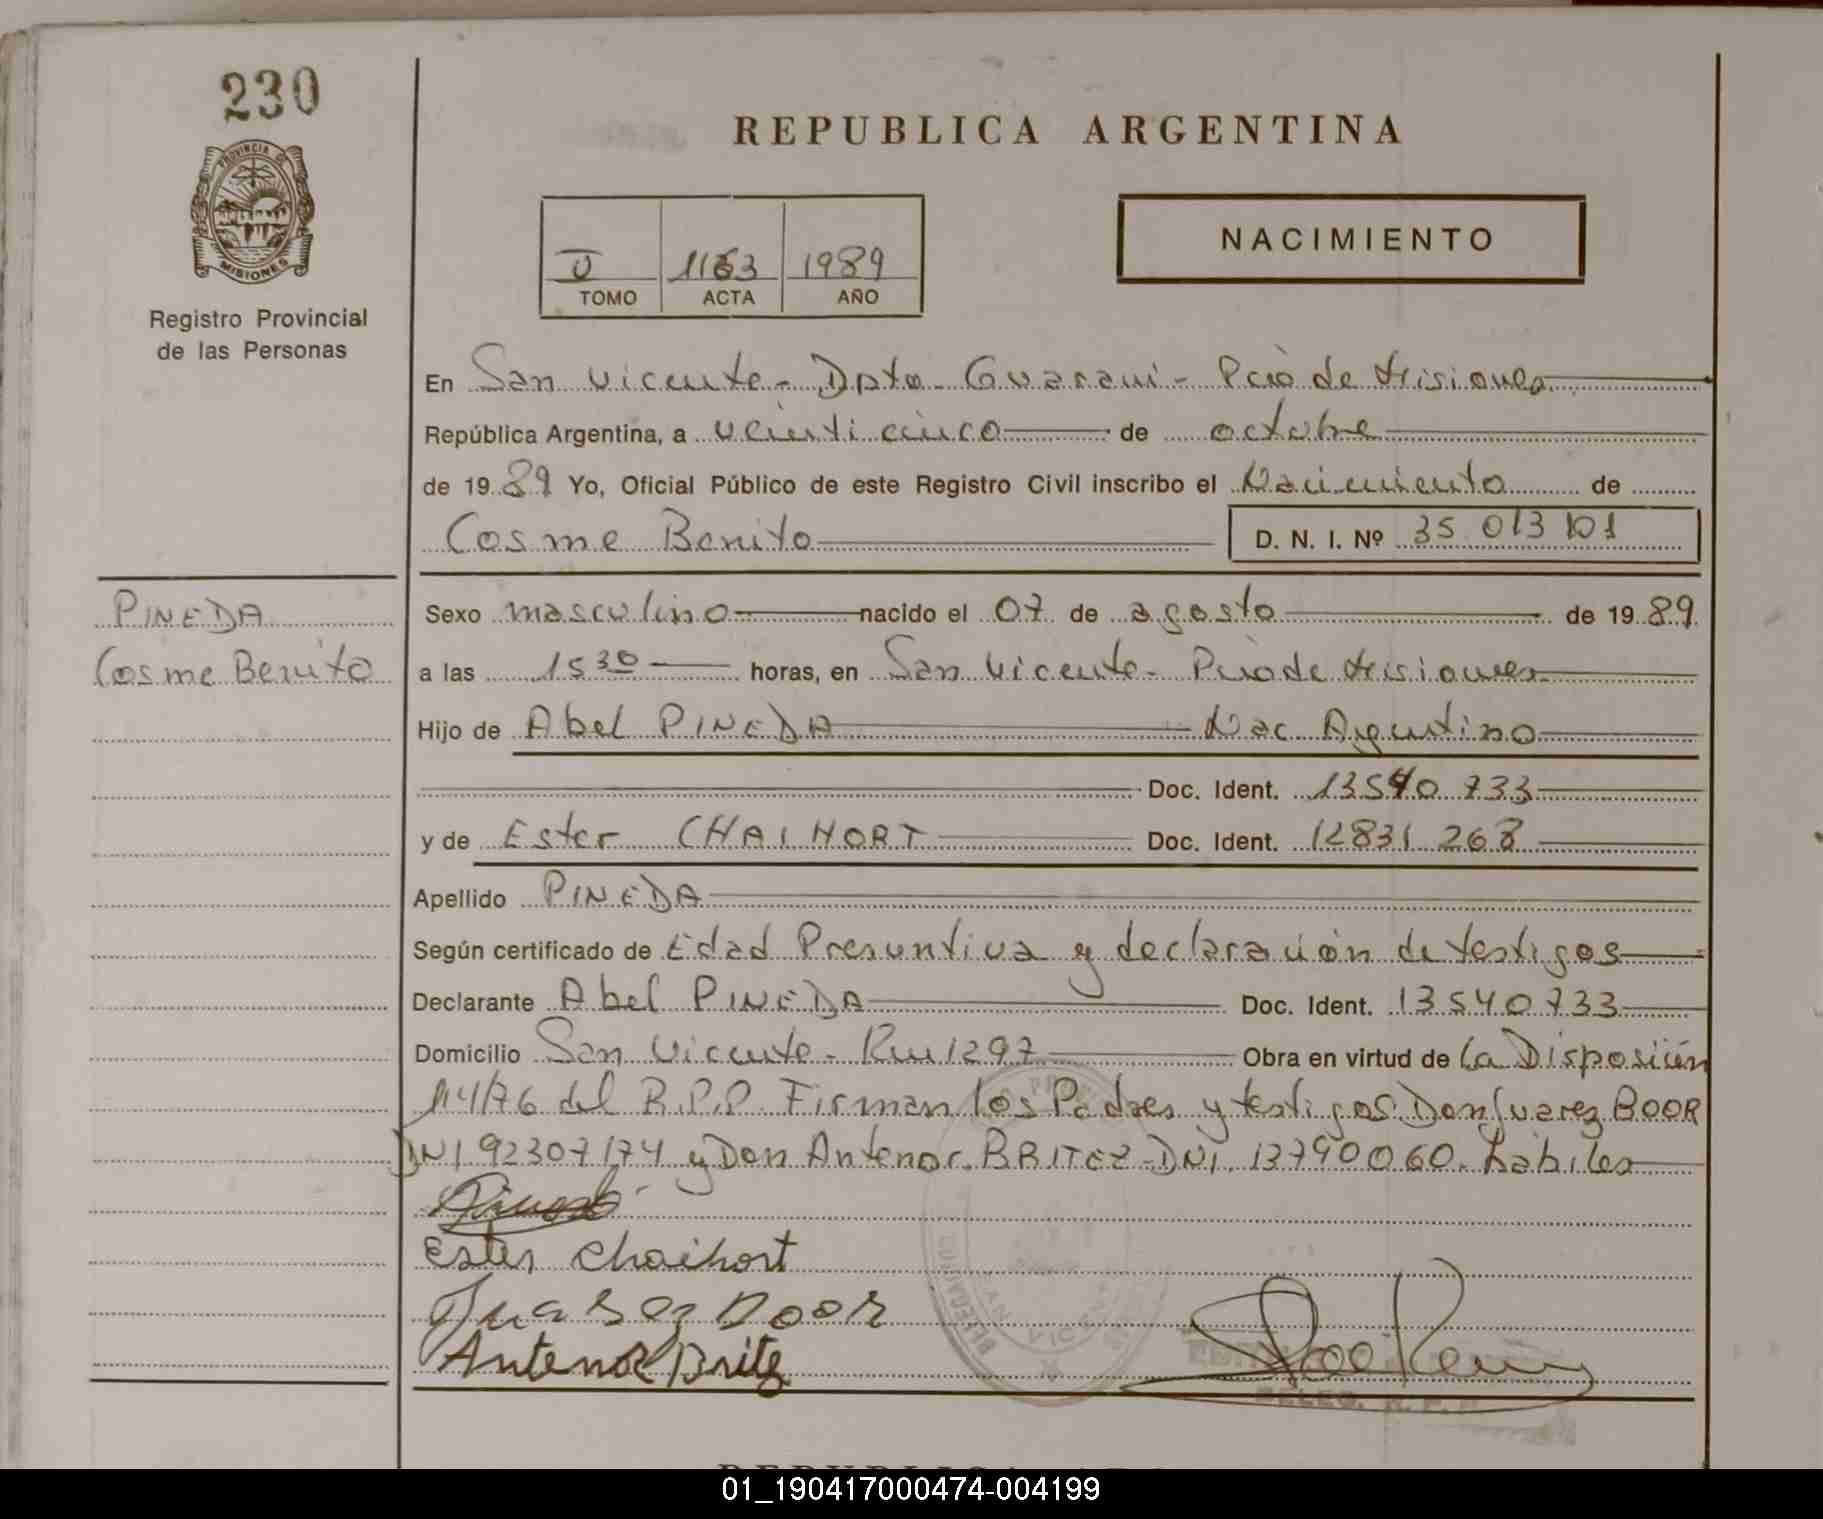 230
PROVINCIA DE
MISIONES
Registro Provincial
de las Personas
REPUBLICA ARGENTINA
NACIMIENTO
1163 1989
TOMO ACTA AÑO
En San Vicente - Dpto - Guaraní - Pcia de Misiones
República Argentina, a veinticinco de octubre
de 1989 Yo, Oficial Público de este Registro Civil inscribo el Nacimiento de
Cosme Benito D. N. I. Nº 35 013 101
PINEDA
Cosme Benito
Sexo masculino nacido el 07 de agosto de 1989
a las 15 30 horas, en San Vicente - Pcia de Misiones
Hijo de Abel PINEDA Nac Argentino
Doc. Ident. 13540 733
y de Ester CHAIHORT Doc. Ident. 12831 268
Apellido PINEDA
Según certificado de Edad Presuntiva y declaración de testigos
Declarante Abel PINEDA Doc. Ident. 13540733
Domicilio San Vicente - Km 1297 Obra en virtud de la Disposición
114/76 del R.P.P. Firman los Padres y testigos Don Juarez BOOR
DNI 92307174 y Don Antenor BRITEZ - DNI. 13790060. habiles
Ester Chaihort
Juarez Boor
Antenor Britez
DELEG. R. P. P.
01_190417000474-004199